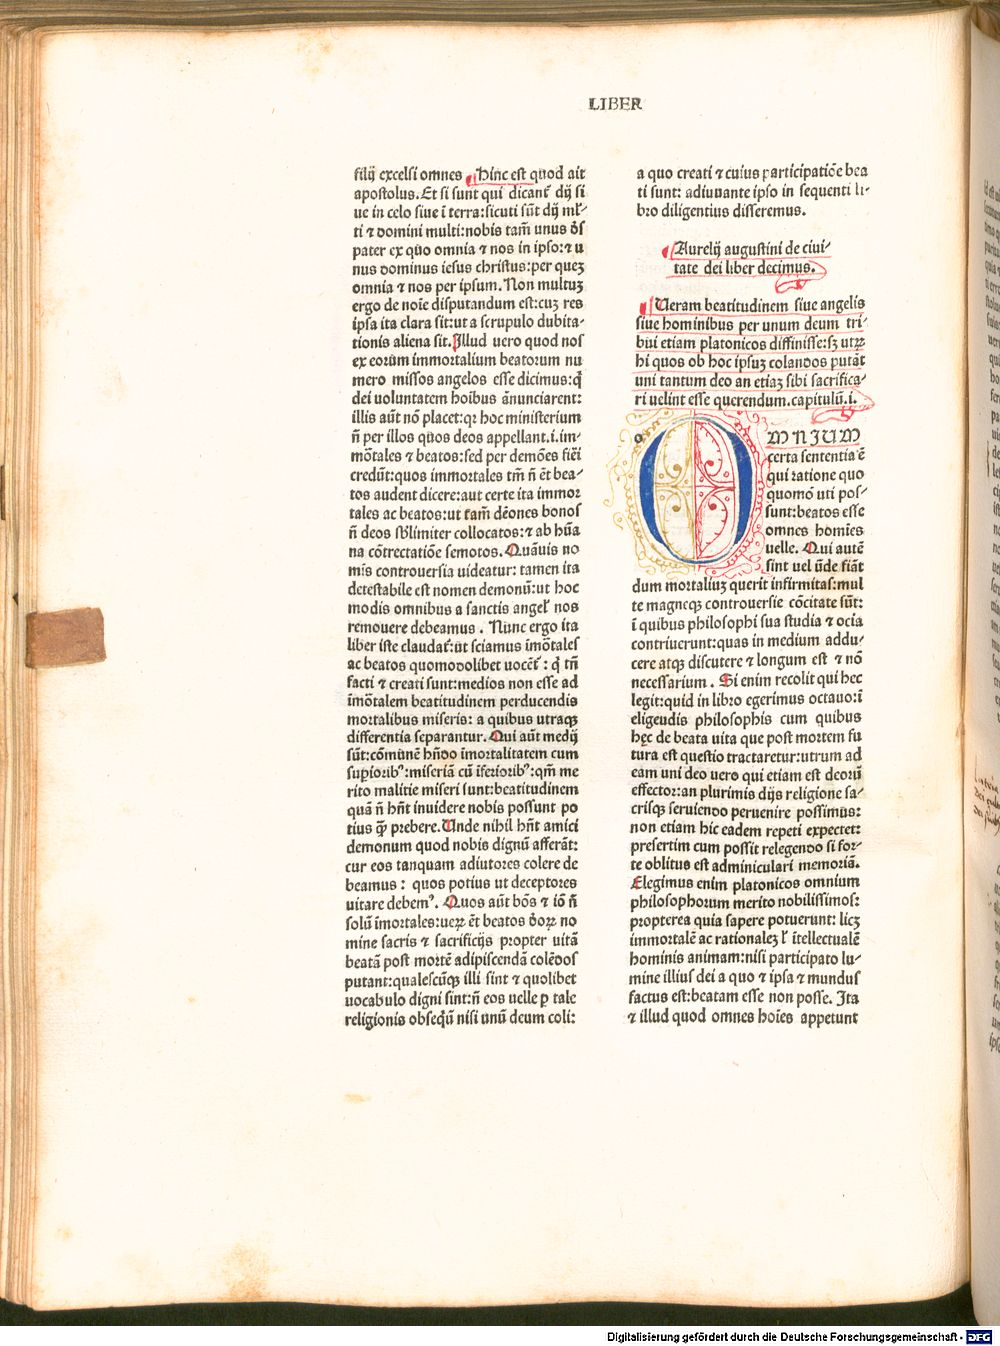 LIBER
filij excelsi omnes Hinc est quod ait
apostolus. Et si sunt qui dicant᷑ dij si
ue in celo siue ī terra: sicuti sūt dij ml᷑-
ti ⁊ domini multi: nobis tam̄ unus ds̄
pater ex quo omnia ⁊ nos in ipso: ⁊ u
nus dominus iesus christus: per quez
omnia ⁊ nos per ipsum. Non multuʒ
ergo de noīe disputandum est: cuʒ res
ipsa ita clara sit: ut a scrupulo dubita-
tionis aliena sit. Illud uero quod nos
ex eorum immortalium beatorum nu
mero missos angelos esse dicimus: q̄
dei uoluntatem hoībus ānunciarent:
illis aūt nō placet: qꝛ hoc ministerium
n̄ per illos quos deos appellant .i. im-
mōtales ⁊ beatos: sed per demōes fieī
credūt: quos immortales tm̄ n̄ ēt bea-
tos audent dicere: aut certe ita immor
tales ac beatos: ut tam̄ dēones bonos
n̄ deos sb̄limiter collocatos: ⁊ ab hūa
na cōtrectatiōe semotos. Quāuis no
mis controuersia uideatur: tamen ita
detestabile est nomen demonū: ut hoc
modis omnibus a sanctis angel᷑ nos
remouere debeamus. Nunc ergo ita
liber iste claudat᷑: ut sciamus imōtales
ac beatos quomodolibet uocēt᷑: q̄ tn̄
facti ⁊ creati sunt: medios non esse ad
īmōtalem beatitudinem perducendis
mortalibus miseris: a quibus utraqꝫ
differentia separantur. Qui aūt medij
sūt: cōmūnē hn̄do īmortalitatem cum
sup̄iorib᷒: miseriā cū īferiorib᷒: qm̄ me
rito malitie miseri sunt: beatitudinem
quā n̄ hn̄t inuidere nobis possunt po
tius qꝫ prebere. Unde nihil hn̄t amici
demonum quod nobis dignū afferāt:
cur eos tanquam adiutores colere de
beamus: quos potius ut deceptores
uitare debem᷒. Quos aūt bōs ⁊ iō n̄
solū īmortales: ueꝝ ēt beatos deoꝝ no
mine sacris ⁊ sacrificijs propter uitā
beatā post mortē adipiscendā colēdos
putant: qualescūqꝫ illi sint ⁊ quolibet
uocabulo digni sint: n̄ eos uelle ꝑ tale
religionis obseqū nisi unū deum coli:
a quo creati ⁊ cuius participatiōe bea
ti sunt: adiuuante ipso in sequenti li-
bro diligentius disseremus.
Aurelij augustini de ciui-
tate dei liber decimus.
Ueram beatitudinem siue angelis
siue hominibus per unum deum tri-
bui etiam platonicos diffinisse: sʒ utꝝ
hi quos ob hoc ipsuʒ colandos putāt
uni tantum deo an etiaʒ sibi sacrifica-
ri uelint esse querendum. capitulū .i.
OMNIUM
certa sententia ē
qui ratione quo
quomō uti pos-
sunt: beatos esse
omnes homīes
uelle. Qui autē
sint uel ūde fiāt
dum mortaliuʒ querit infirmitas: mul
te magneqꝫ controuersie cōcitate sūt:
ī quibus philosophi sua studia ⁊ ocia
contriuerunt: quas in medium addu-
cere atqꝫ discutere ⁊ longum est ⁊ nō
necessarium. Si enim recolit qui hec
legit: quid in libro egerimus octauo: ī
eligeudis philosophis cum quibus
hęc de beata uita que post mortem fu
tura est questio tractaretur: utrum ad
eam uni deo uero qui etiam est deorū
effector: an plurimis dijs religione sa-
crisqꝫ seruiendo peruenire possimus:
non etiam hic eadem repeti expectet:
presertim cum possit relegendo si for-
te oblitus est adminiculari memoriā.
Elegimus enim platonicos omnium
philosophorum merito nobilissimos:
propterea quia sapere potuerunt: licʒ
immortalē ac rationaleʒ l᷑ ītellectualē
hominis animam: nisi participato lu-
mine illius dei a quo ⁊ ipsa ⁊ mundus
factus est: beatam esse non posse. Ita
⁊ illud quod omnes hoīes appetunt
Digitalisierung gefördert durch die Deutsche Forschungsgemeinschaft - DFG